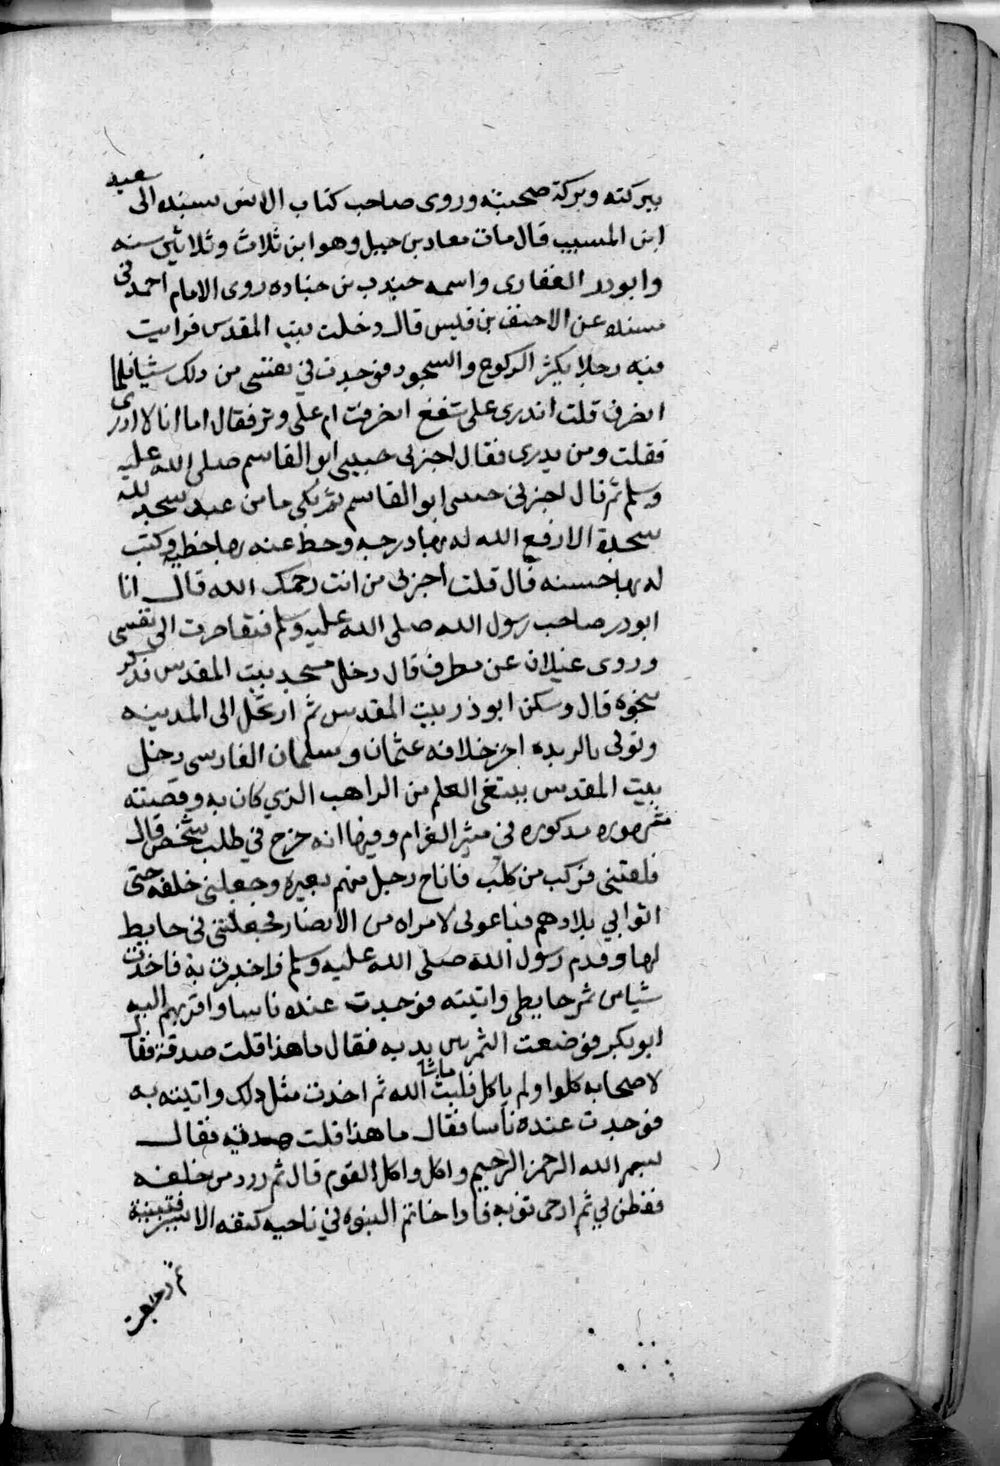 ببركته وبركة صحبته وروى صاحب كتاب الانس بسنده الى سعيد
ابن المسيب قال مات معاد بن جبل وهو ابن ثلاث وثلاثين سنه
وابودر الغفارى واسمه جندب بن جناده روى الامام احمد في
مسنده عن الاحنف بن قيس قال دخلت بيت المقدس فرايت
فيه رجلا يكثر الركوع والسجود فوجدت في نفسى من دلك شيا فلما
انصرف قلت اتدرى على شفع انصرفت ام على وتر فقال اما انا لا ادرى
فقلت ومن يدرى فقال اخبرنى حبيبى ابو القاسم صلى الله عليه
وسلم ثم قال اخبرنى حبيبى ابو القاسم ثم بكى ما من عبد سجد لله
سجدة الا رفع الله له بها درجه وحط عنه بها خطيه وكتب
له بها حسنه قال قلت اخبرنى من انت رحمك الله قال انا
ابودر صاحب رسول الله صلى الله عليه وسلم فتقاصرت الى نفسى
وروى غيلان عن مطرف قال دخل مسجد بيت المقدس فدكر
نحوه قال وسكن ابوذر بيت المقدس ثم ارتحل الى المدينه
وتوفى بالربده اخر خلافه عثمان وسلمان الفارسى دخل
بيت المقدس يبتغى العلم من الراهب الذي كان به وقصته
مشهوره مدكوره في مثير الغرام وفيها انه خرج في طلب شخص قال
فلقينى ركب من كلب فاناخ رجل منهم بعيره وجعلنى خلفه حتى
اتوا بي بلادهم فباعونى لامراه من الانصار فجعلتنى في حايط
لها وقدم رسول الله صلى الله عليه وسلم فاخبرت به فاخدت
شيا من ثمر حايطى واتيته فوجدت عنده ناسا واقربهم اليه
ابو بكر فوضعت الثمر بين يديه فقال ما هذا قلت صدقة فقال
لاصحابه كلوا ولم ياكل فلبثت ماشا الله ثم اخدت مثل دلك واتيته به
فوجدت عنده ناسا فقال ما هذا قلت هديه فقال
بسم الله الرحمن الرحيم واكل واكل القوم قال ثم درت من خلفه
ففطن لي ثم ارخى ثوبه فادا خاتم النبوه في ناحيه كتفه الايسر فتبينته
ثم رجعت